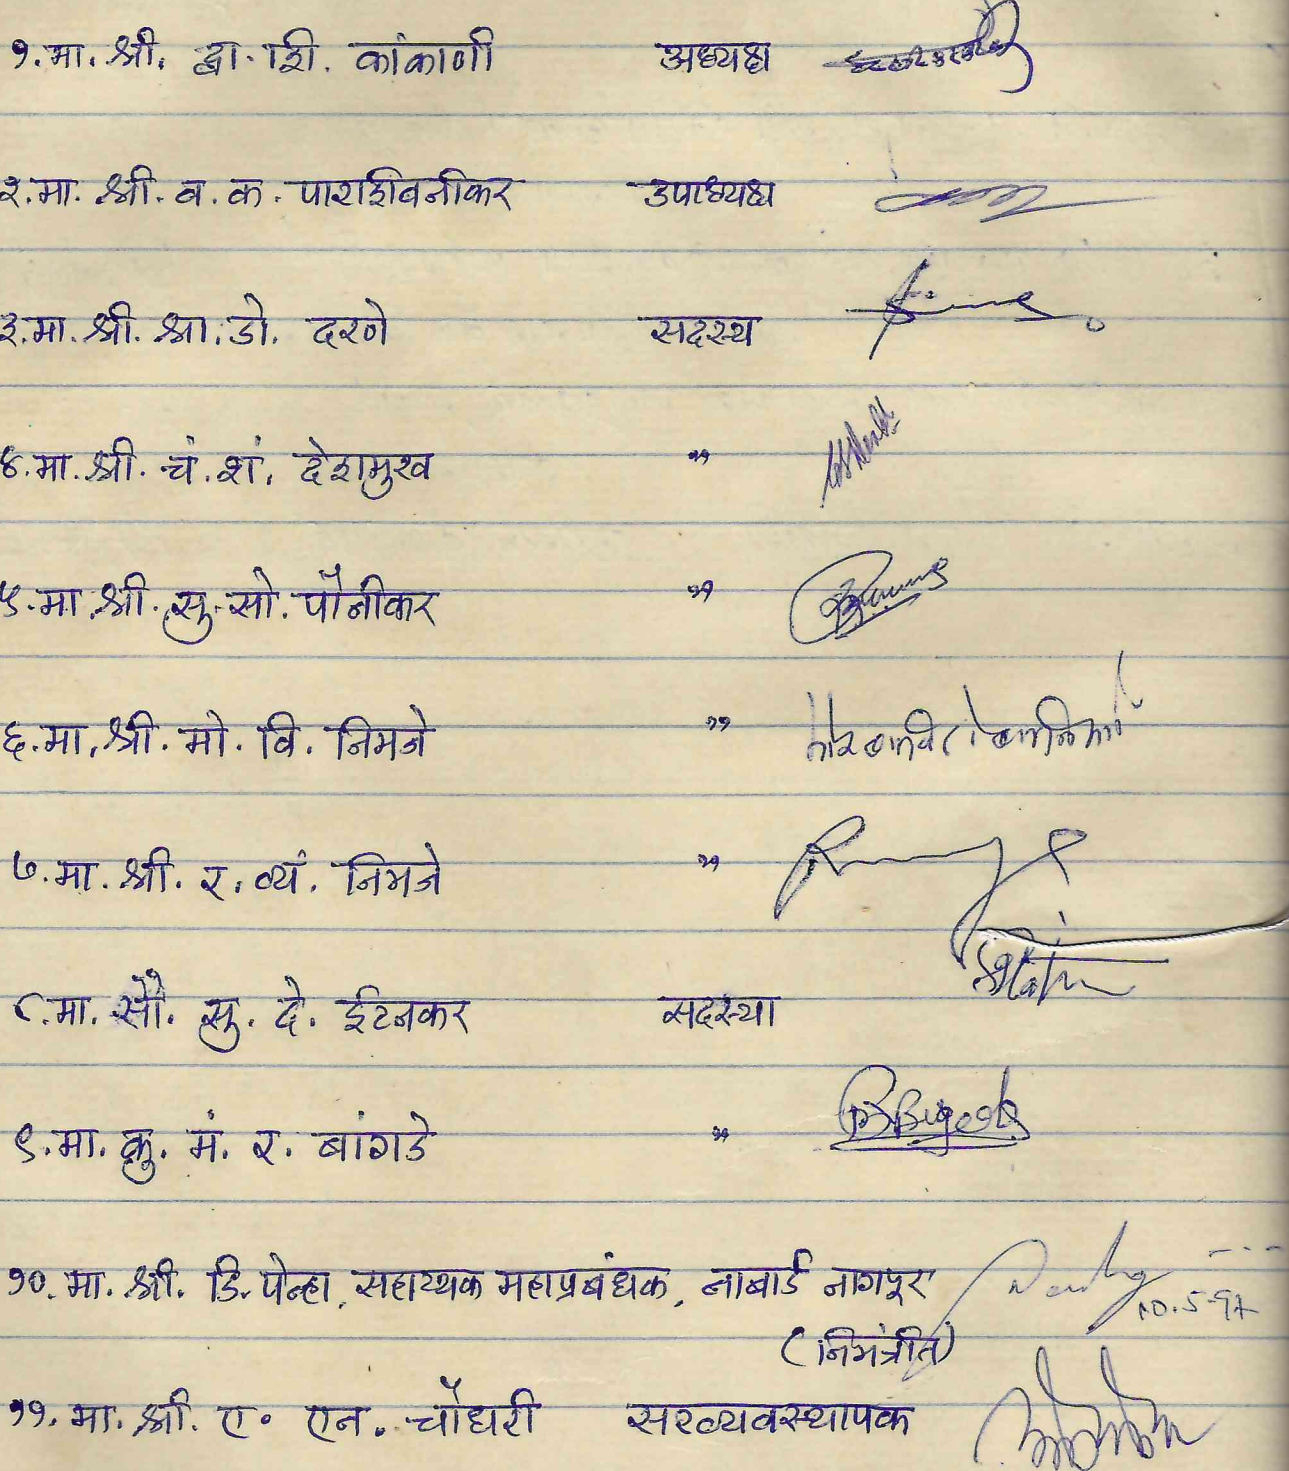 १. मा. श्री. द्वा. शि. कांकाणी अध्यक्ष
२. मा. श्री. व. क. पाराशीवनीकर उपाध्यक्ष
३. मा. श्री. श्रा. डो. दरणे सदस्य
४. मा. श्री. चं. शं. देशमुख "
५. मा. श्री. सु. सो. पौनीकर "
६. मा. श्री. मो. वि. निमजे "
७. मा. श्री. र. व्यं. निमजे "
८. मा. सौ. सु. दे. ईटनकर सदस्या
९. मा. कु. मं. र. बांगडे "
१०. मा. श्री. डि. पेन्हा, सहाय्यक महाप्रबंधक, नाबार्ड नागपूर
(निमंत्रीत)
११. मा. श्री. ए. एन. चौधरी सरव्यवस्थापक